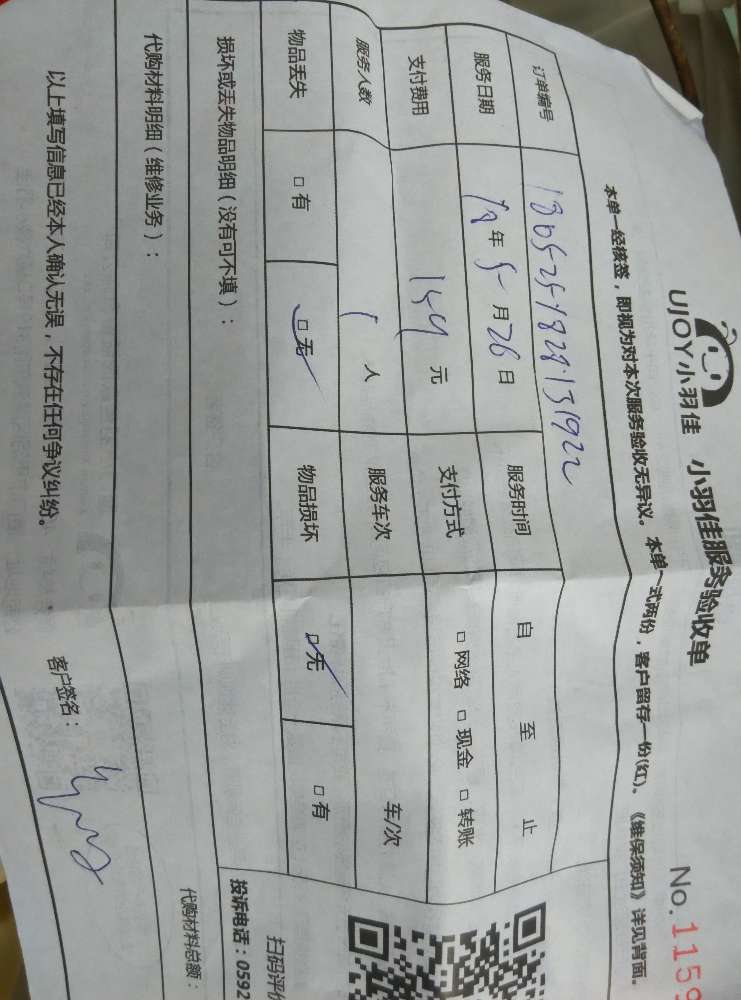 UJOY小羽佳 小羽佳服务验收单
No.1159
本单一经核签，即视为对本次服务验收无异议。本单一式两份，客户留存一份(红)。《维保须知》详见背面。
订单编号
服务日期 年5月26日 服务时间 自 至 止
支付费用 159元 支付方式 □网络 □现金 □转账
服务人数 1人 服务车次 车/次
物品丢失 □有 □无 物品损坏 □无 □有
损坏或丢失物品明细（没有可不填）：
代购材料明细（维修业务）：
代购材料总额：
扫码评价
投诉电话：0592
以上填写信息已经本人确认无误，不存在任何争议纠纷。
客户签名：